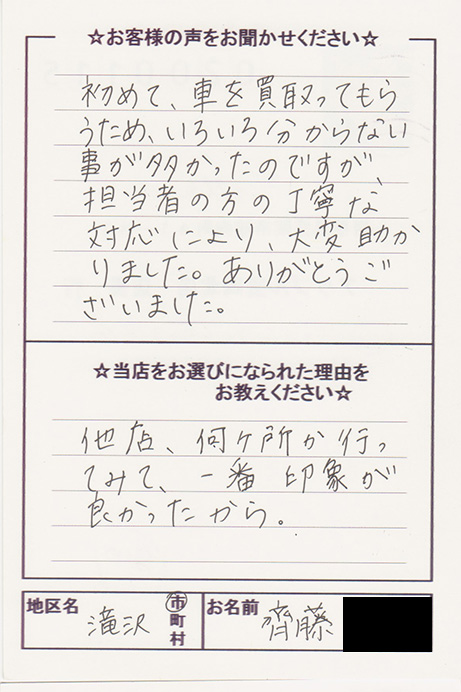 ☆お客様の声をお聞かせください☆
初めて、車を買取ってもら
うため、いろいろ分からない
事が多かったのですが、
担当者の方の丁寧な
対応により、大変助か
りました。ありがとうご
ざいました。
☆当店をお選びになられた理由を
お教えください☆
他店、何ヶ所か行っ
てみて、一番 印象が
良かったから。
地区名 滝沢 市町村 お名前 齊藤